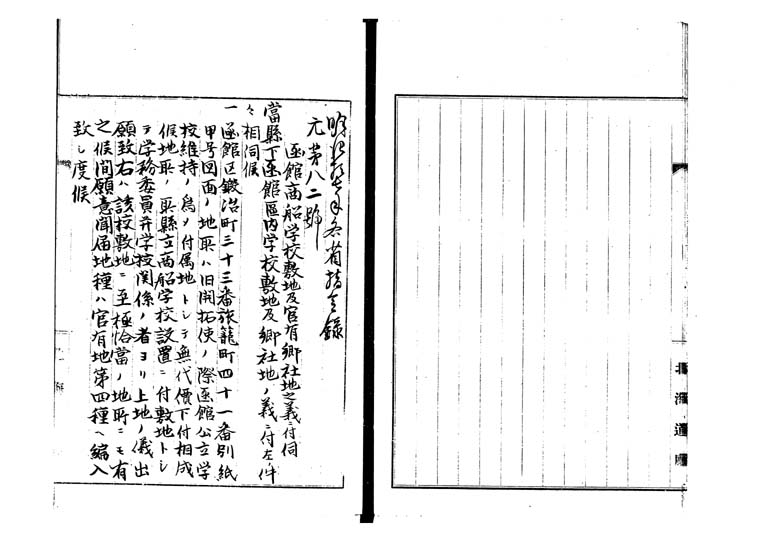 明治十九年各省指令録
元第八二號
函館商船学校敷地及官有郷社地之義ニ付伺
當縣下函館區内学校敷地及郷社地ノ義ニ付左ノ件
々相伺候
一函館区鍛冶町三十三番旅籠町四十一番別紙
甲号図面ノ地所ハ旧開拓使ノ際函館公立学
校維持ノ為メ付属地トシテ無代價下付相成
候地所ノ処縣立商船学校設置ニ付敷地トシ
テ学務委員并学校関係ノ者ヨリ上地ノ儀出
願致右ハ該校敷地ニ至極恰當ノ地所ニモ有
之候間願意聞届地種ハ官有地第四種ヘ編入
致シ度候
北海道廳